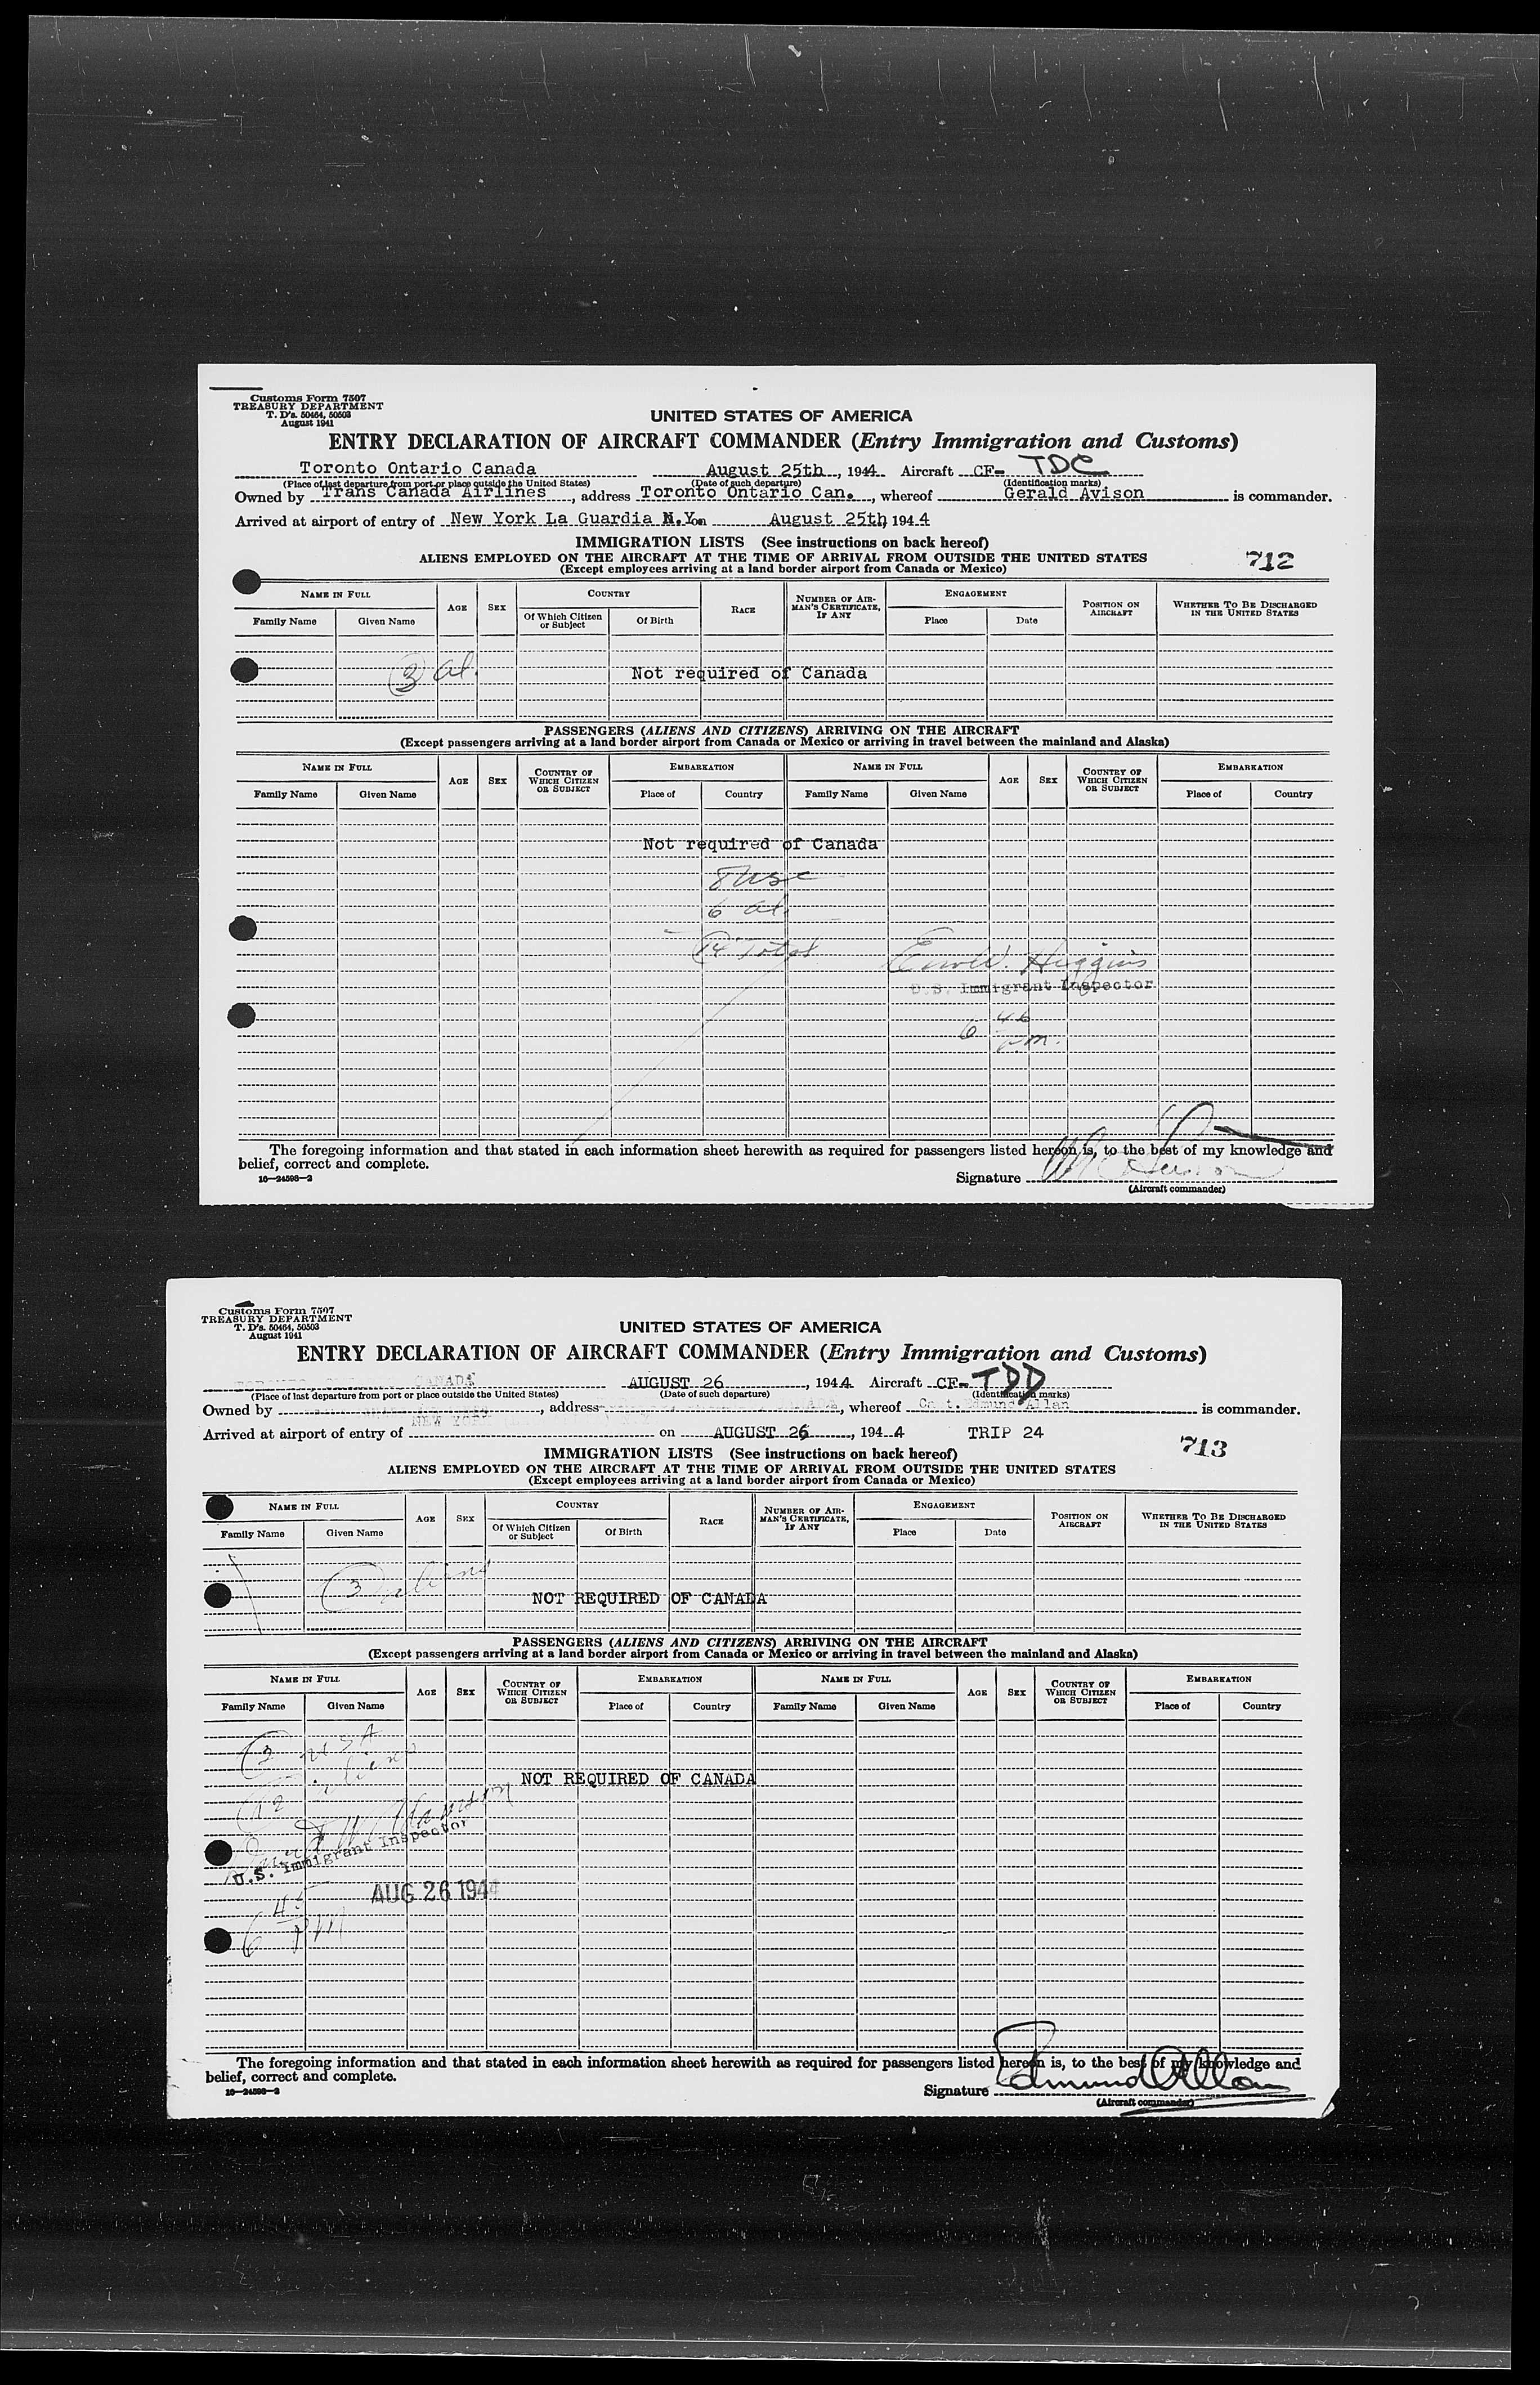 Customs Form 7507
TREASURY DEPARTMENT
T. D's. 50464, 50503
August 1941
UNITED STATES OF AMERICA
ENTRY DECLARATION OF AIRCRAFT COMMANDER (Entry Immigration and Customs)
Toronto Ontario Canada August 25th, 1944 Aircraft CF- TDC
(Place of last departure from port or place outside the United States) (Date of such departure) (Identification marks)
Owned by Trans Canada Airlines, address Toronto Ontario Can., whereof Gerald Avison is commander.
Arrived at airport of entry of New York La Guardia N.Y. on August 25th, 1944
IMMIGRATION LISTS (See instructions on back hereof)
ALIENS EMPLOYED ON THE AIRCRAFT AT THE TIME OF ARRIVAL FROM OUTSIDE THE UNITED STATES
(Except employees arriving at a land border airport from Canada or Mexico)
712
NAME IN FULL AGE SEX COUNTRY RACE NUMBER OF AIRMAN'S CERTIFICATE, IF ANY ENGAGEMENT POSITION ON AIRCRAFT WHETHER TO BE DISCHARGED IN THE UNITED STATES
Family Name Given Name Of Which Citizen or Subject Of Birth Place Date
3 al. Not required of Canada
PASSENGERS (ALIENS AND CITIZENS) ARRIVING ON THE AIRCRAFT
(Except passengers arriving at a land border airport from Canada or Mexico or arriving in travel between the mainland and Alaska)
NAME IN FULL AGE SEX COUNTRY OF WHICH CITIZEN OR SUBJECT EMBARKATION NAME IN FULL AGE SEX COUNTRY OF WHICH CITIZEN OR SUBJECT EMBARKATION
Family Name Given Name Place of Country Family Name Given Name Place of Country
Not required of Canada
8 usc
6 al.
14 Total
Higgins
U.S. Immigrant Inspector
6 46
p.m.
The foregoing information and that stated in each information sheet herewith as required for passengers listed hereon is, to the best of my knowledge and
belief, correct and complete.
16—24598—2
Signature
(Aircraft commander)
Customs Form 7507
TREASURY DEPARTMENT
T. D's. 50464, 50503
August 1941
UNITED STATES OF AMERICA
ENTRY DECLARATION OF AIRCRAFT COMMANDER (Entry Immigration and Customs)
CANADA AUGUST 26, 1944 Aircraft CF- TDD
(Place of last departure from port or place outside the United States) (Date of such departure) (Identification marks)
Owned by , address , whereof Capt. Edmund Allan is commander.
Arrived at airport of entry of NEW YORK on AUGUST 26, 1944 TRIP 24
713
IMMIGRATION LISTS (See instructions on back hereof)
ALIENS EMPLOYED ON THE AIRCRAFT AT THE TIME OF ARRIVAL FROM OUTSIDE THE UNITED STATES
(Except employees arriving at a land border airport from Canada or Mexico)
NAME IN FULL AGE SEX COUNTRY RACE NUMBER OF AIRMAN'S CERTIFICATE, IF ANY ENGAGEMENT POSITION ON AIRCRAFT WHETHER TO BE DISCHARGED IN THE UNITED STATES
Family Name Given Name Of Which Citizen or Subject Of Birth Place Date
3 aliens
NOT REQUIRED OF CANADA
PASSENGERS (ALIENS AND CITIZENS) ARRIVING ON THE AIRCRAFT
(Except passengers arriving at a land border airport from Canada or Mexico or arriving in travel between the mainland and Alaska)
NAME IN FULL AGE SEX COUNTRY OF WHICH CITIZEN OR SUBJECT EMBARKATION NAME IN FULL AGE SEX COUNTRY OF WHICH CITIZEN OR SUBJECT EMBARKATION
Family Name Given Name Place of Country Family Name Given Name Place of Country
3 USA
12 aliens
NOT REQUIRED OF CANADA
U.S. Immigrant Inspector
AUG 26 1944
6 45
PM
The foregoing information and that stated in each information sheet herewith as required for passengers listed hereon is, to the best of my knowledge and
belief, correct and complete.
16—24598—2
Signature Edmund Allan
(Aircraft commander)